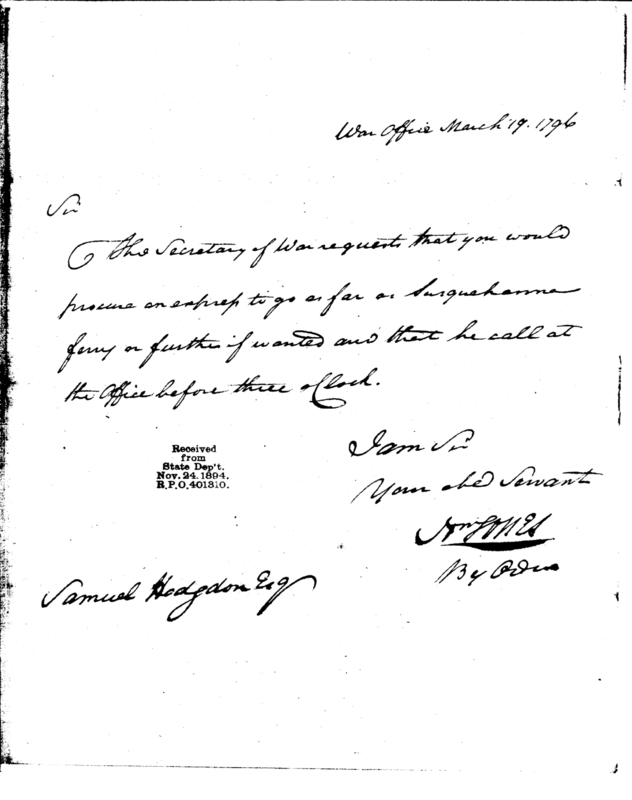 War Office March 19. 1796
Sir
The Secretary of War requests that you would
procure an express to go as far as Susquehanna
ferry or further if wanted and that he call at
the Office before three oClock.
I am Sir
Your obed Servant
Received
from
State Dep't.
Nov. 24. 1894.
R.P.O. 401310.
Wm Jones
By Order
Samuel Hodgdon Esq